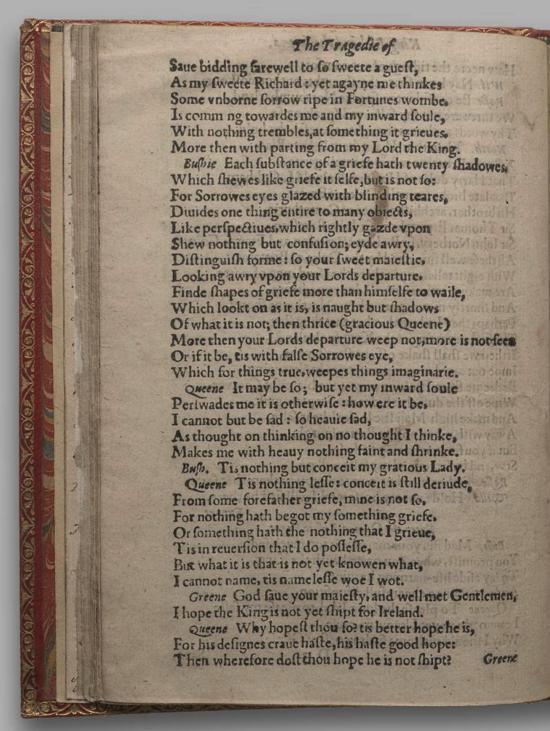 The Tragedie of
Saue bidding farewell to ſo ſweete a gueſt,
As my ſweete Richard: yet agayne me thinkes
Some vnborne ſorrow ripe in Fortunes wombe,
Is comm ng towardes me and my inward ſoule,
With nothing trembles, at ſomething it grieues,
More then with parting from my Lord the King.
Buſhie Each ſubſtance of a griefe hath twenty ſhadowes,
Which ſhewes like griefe it ſelfe, but is not ſo:
For Sorrowes eyes glazed with blinding teares,
Diuides one thing entire to many obiects,
Like perſpectiues, which rightly gazde vpon
Shew nothing but confuſion; eyde awry,
Diſtinguiſh forme: ſo your ſweet maieſtie,
Looking awry vpon your Lords departure,
Finde ſhapes of griefe more than himſelfe to waile,
Which lookt on as it is, is naught but ſhadows
Of what it is not; then thrice (gracious Queene)
More then your Lords departure weep not, more is not ſeen
Or if it be, tis with falſe Sorrowes eye,
Which for things true, weepes things imaginarie.
Queene It may be ſo; but yet my inward ſoule
Perſwades me it is otherwiſe: how ere it be,
I cannot but be ſad: ſo heauie ſad,
As thought on thinking on no thought I thinke,
Makes me with heauy nothing faint and ſhrinke.
Buſh. Tis nothing but conceit my gratious Lady.
Queene Tis nothing leſſe: conceit is ſtill deriude,
From ſome forefather griefe, mine is not ſo,
For nothing hath begot my ſomething griefe,
Or ſomething hath the nothing that I grieue,
Tis in reuerſion that I do poſſeſſe,
But what it is that is not yet knowen what,
I cannot name, tis nameleſſe woe I wot.
Greene God ſaue your maieſty, and well met Gentlemen,
I hope the King is not yet ſhipt for Ireland.
Queene Why hopeſt thou ſo? tis better hope he is,
For his deſignes craue haſte, his haſte good hope:
Then wherefore doſt thou hope he is not ſhipt?
Greene